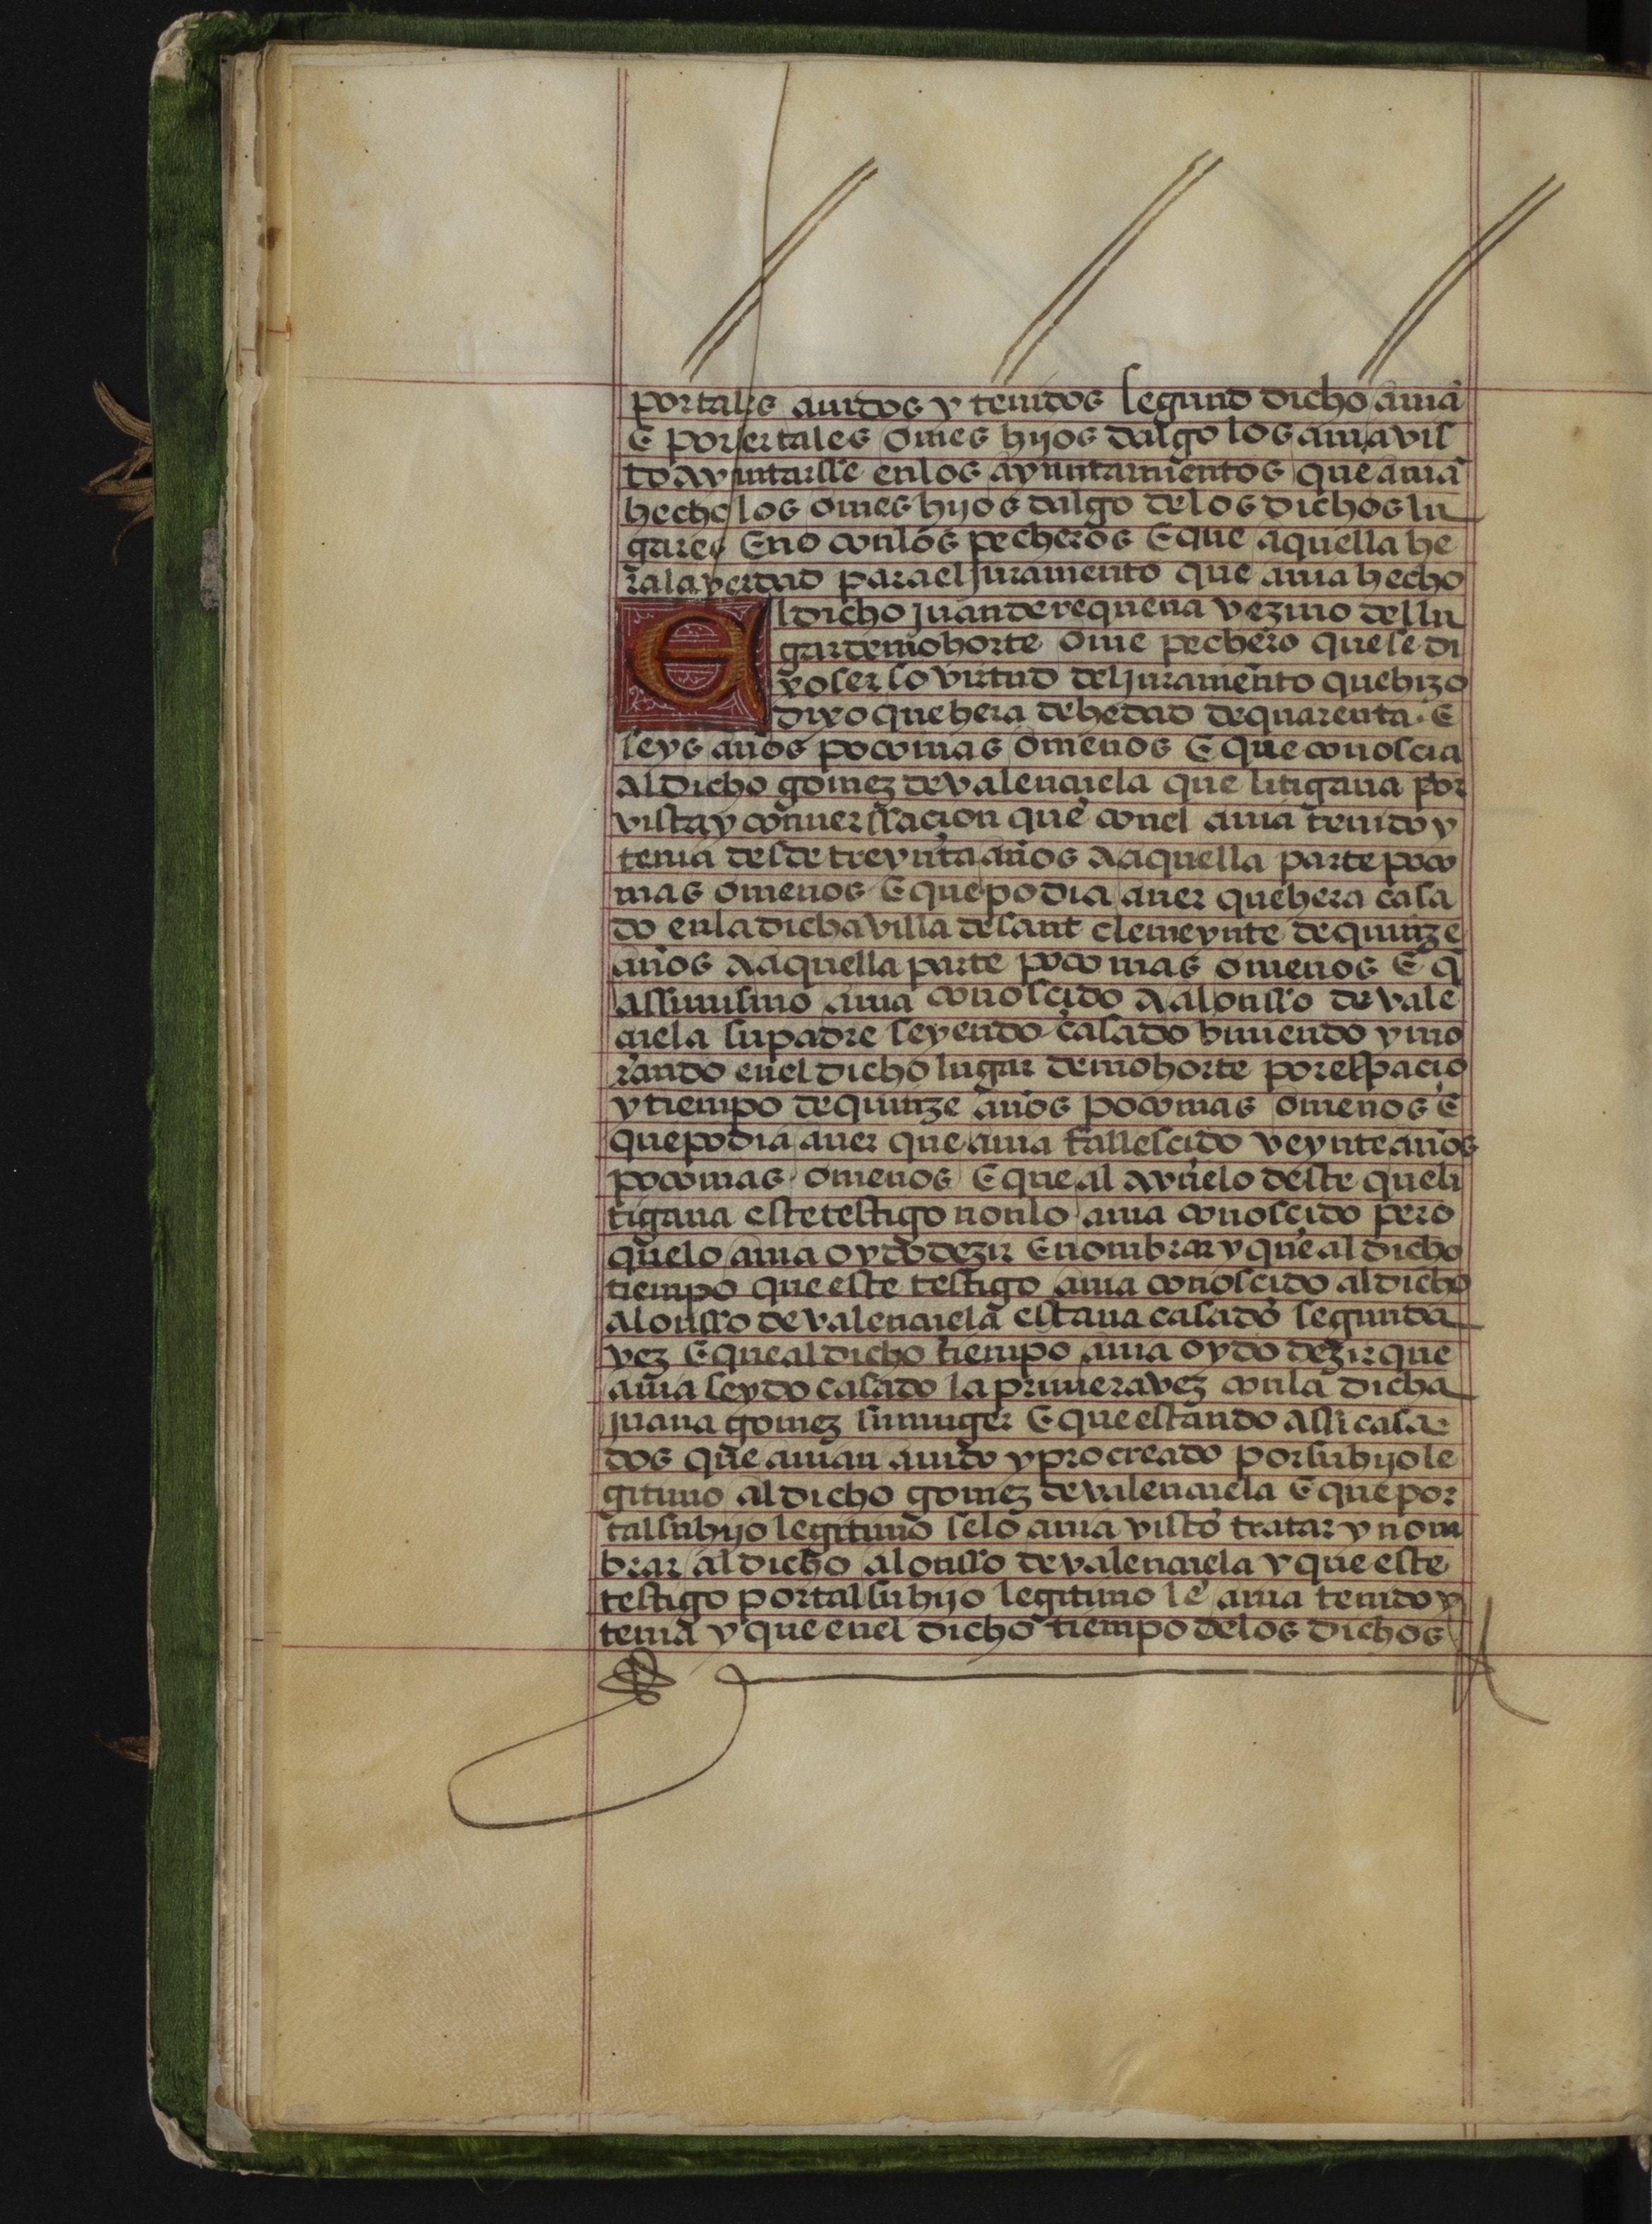 portales auidos y tenidos segund dicho auia
E por ser tales omes hijos dalgo los auia vis
to ayuntarsse en los ayuntamientos que auia
hecho los omes hijos dalgo de los dichos lu
gares E no con los pecheros E que aquella he
ra la verdad para el juramento que auia hecho
El dicho juan de requena vezino del lu
gar de mohorte ome pechero que se di
xo ser so virtud del juramento que hizo
dixo que hera de hedad de quarenta E
seys años poco mas o menos E que conoscia
al dicho gomez de valençiela que litigaua por
vista y conuerssaçion que con el auia tenido y
tenia desde treynta años a aquella parte poco
mas o menos E que podia auer que hera casa
do en la dicha villa de sant clemeynte de quinze
años a aquella parte poco mas o menos E q̃
assimismo auia conosçido a alonsso de vale
çiela su padre seyendo casado biuiendo y mo
rando en el dicho lugar de mohorte por espacio
y tiempo de quinze años poco mas o menos E
que podia auer que auia fallescido veynte años
poco mas o menos E que al avuelo deste que li
tigaua este testigo non lo auia conosçido pero
que lo auia oydo dezir E nombrar y que al dicho
tiempo que este testigo auia conosçido al dicho
alonsso de valençiela estaua casado segunda
vez E que al dicho tiempo auia oydo dezir que
auia seydo casado la primera vez con la dicha
juana gomez su muger E que estando assi casa
dos que auian auido y procreado por su hijo le
gitimo al dicho gomez de valençiela E que por
tal su hijo legitimo se lo auia visto tratar y nom
brar al dicho alonsso de valençiela y que este
testigo por tal su hijo legitimo le auia tenido y
tenia y que en el dicho tiempo de los dichos